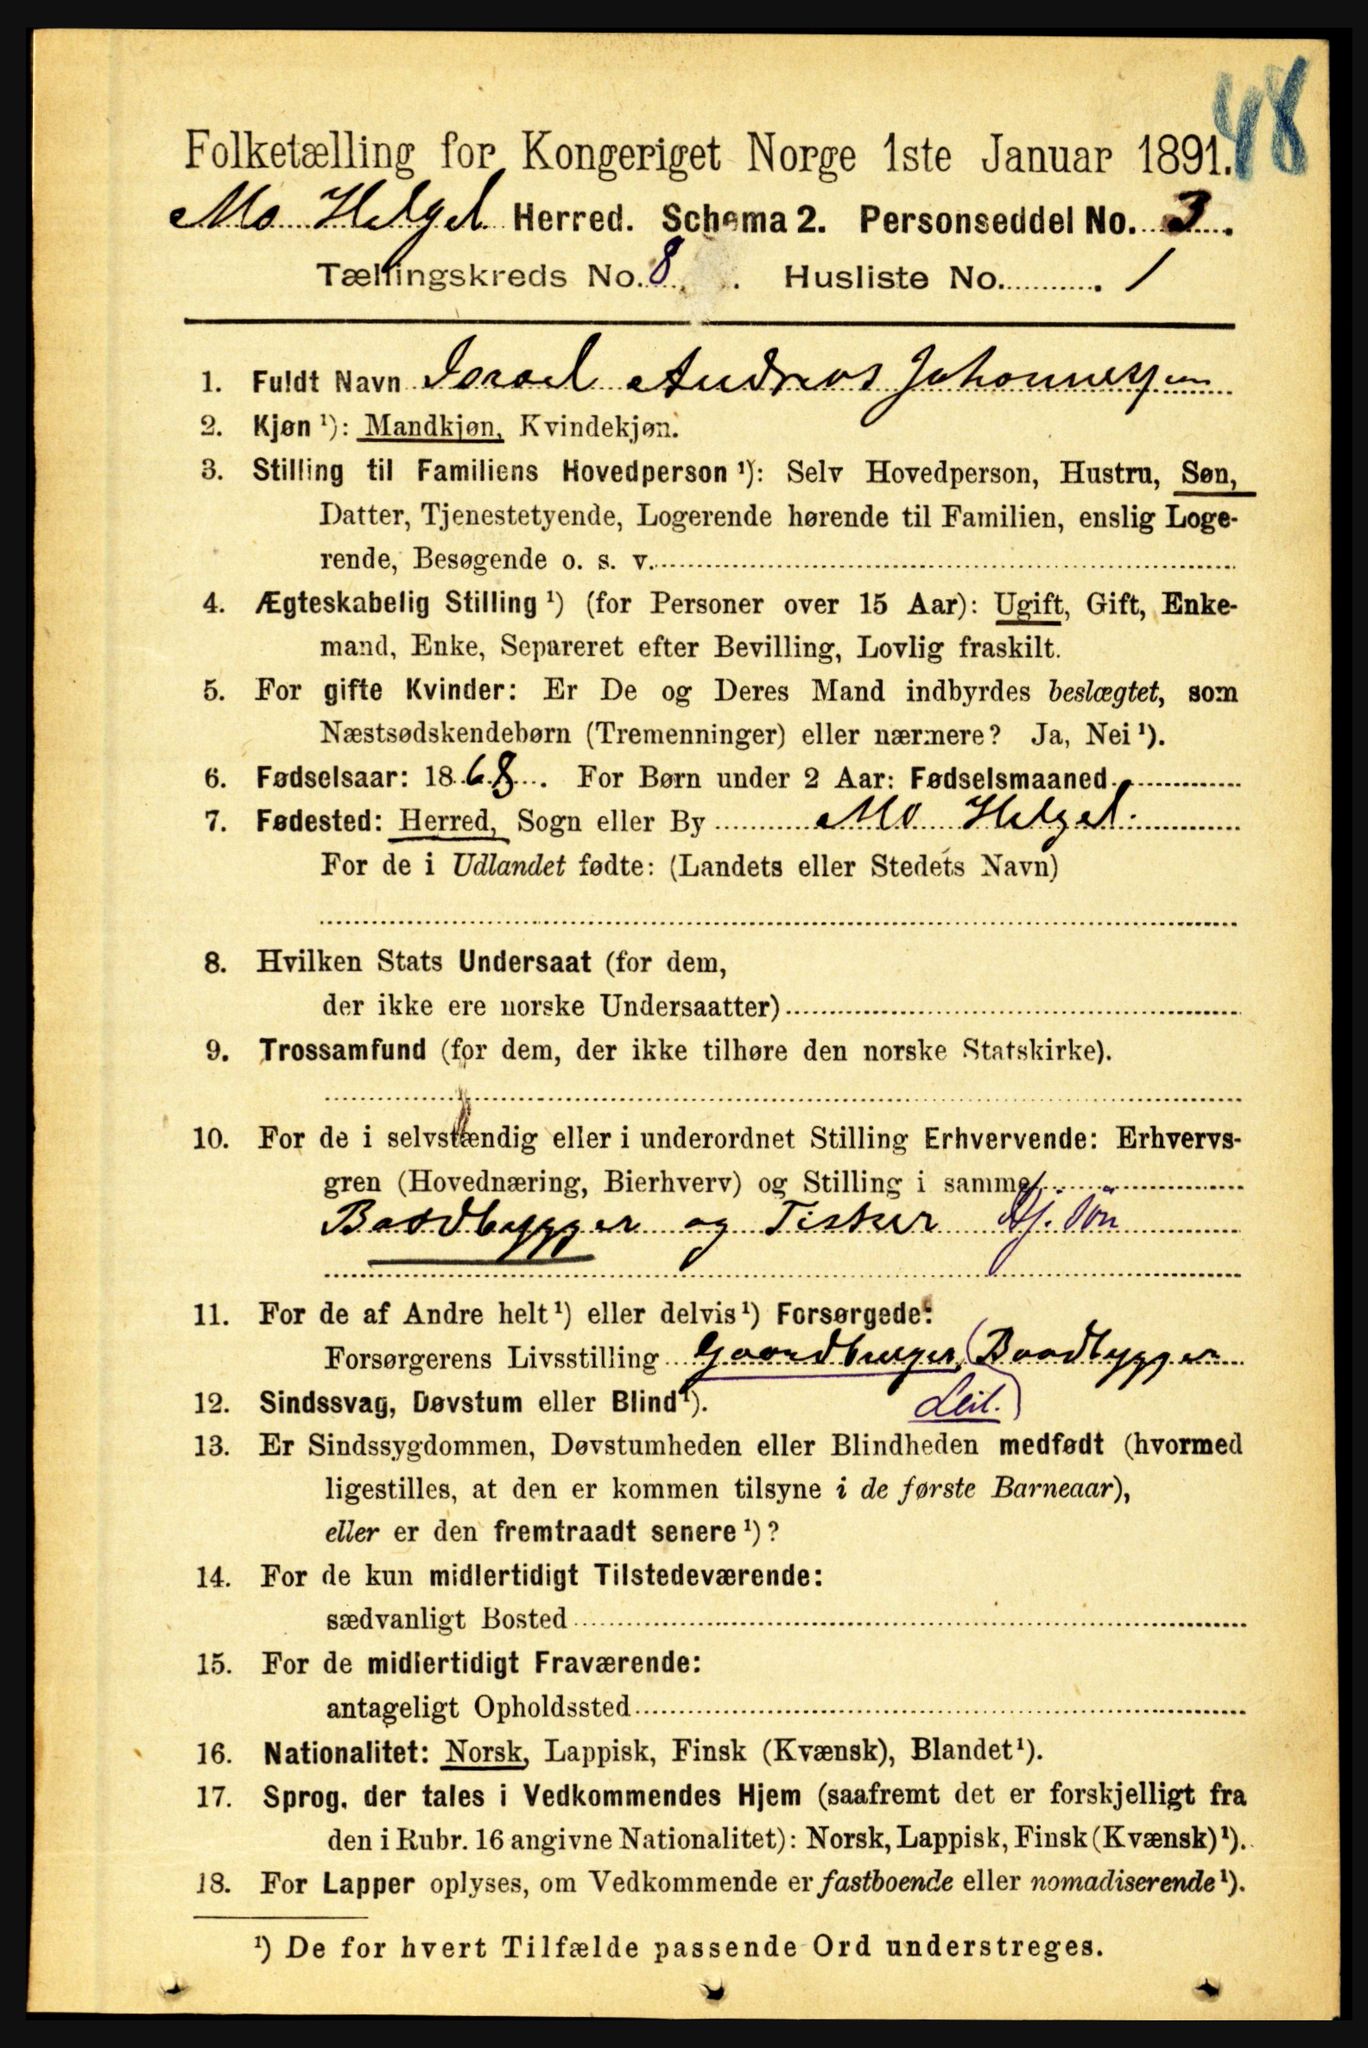 48
Folketælling for Kongeriget Norge 1ste Januar 1891.
Mo Helgel Herred. Schema 2. Personseddel No. 3.
Tællingskreds No. 8. Husliste No. 1
1. Fuldt Navn Israel Andreas Johannessen
2. Kjøn ¹): Mandkjøn, Kvindekjøn.
3. Stilling til Familiens Hovedperson ¹): Selv Hovedperson, Hustru, Søn,
Datter, Tjenestetyende, Logerende hørende til Familien, enslig Loge-
rende, Besøgende o. s. v.
4. Ægteskabelig Stilling ¹) (for Personer over 15 Aar): Ugift, Gift, Enke-
mand, Enke, Separeret efter Bevilling, Lovlig fraskilt.
5. For gifte Kvinder: Er De og Deres Mand indbyrdes beslægtet, som
Næstsødskendebørn (Tremenninger) eller nærmere? Ja, Nei ¹).
6. Fødselsaar: 1868. For Børn under 2 Aar: Fødselsmaaned
7. Fødested: Herred, Sogn eller By Mo Helgel.
For de i Udlandet fødte: (Landets eller Stedets Navn)
8. Hvilken Stats Undersaat (for dem,
der ikke ere norske Undersaatter)
9. Trossamfund (for dem, der ikke tilhøre den norske Statskirke).
10. For de i selvstændig eller i underordnet Stilling Erhvervende: Erhvervs-
gren (Hovednæring, Bierhverv) og Stilling i samme
Baadbygger og Fisker Hj. Søn
11. For de af Andre helt ¹) eller delvis ¹) Forsørgede:
Forsørgerens Livsstilling Gaardbruger, Baadbygger
Leil.
12. Sindssvag, Døvstum eller Blind ¹).
13. Er Sindssygdommen, Døvstumheden eller Blindheden medfødt (hvormed
ligestilles, at den er kommen tilsyne i de første Barneaar),
eller er den fremtraadt senere ¹)?
14. For de kun midlertidigt Tilstedeværende:
sædvanligt Bosted
15. For de midlertidigt Fraværende:
antageligt Opholdssted
16. Nationalitet: Norsk, Lappisk, Finsk (Kvænsk), Blandet ¹).
17. Sprog, der tales i Vedkommendes Hjem (saafremt det er forskjelligt fra
den i Rubr. 16 angivne Nationalitet): Norsk, Lappisk, Finsk (Kvænsk) ¹).
18. For Lapper oplyses, om Vedkommende er fastboende eller nomadiserende ¹).
¹) De for hvert Tilfælde passende Ord understreges.